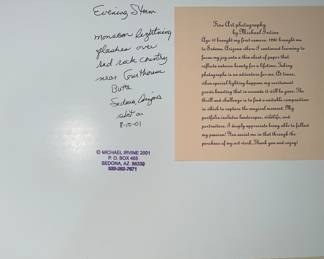 Evening Storm
monsoon lightning
flashes over
red rock country
near Courthouse
Butte
Sedona, Arizona
shot on
8-10-01
© MICHAEL IRVINE 2001
P. O. BOX 465
SEDONA, AZ 86339
Fine Art photography
by Michael Irvine
Age 11 brought my first camera. 1990 brought me
to Sedona, Arizona where I continued learning to
focus my joy onto a thin sheet of paper that
reflects nature beauty for a lifetime. Taking
photographs is an adventure for me. At times,
when special lighting happens my excitement
knowing that in seconds it will be gone. The
thrill and challenge is to find a suitable composition
in which to capture the magical moment. My
portfolio includes landscapes, wildlife, and
portraiture. I deeply appreciate being able to follow
my passion! You assist me in that through the
purchase of my art work. Thank you and enjoy!